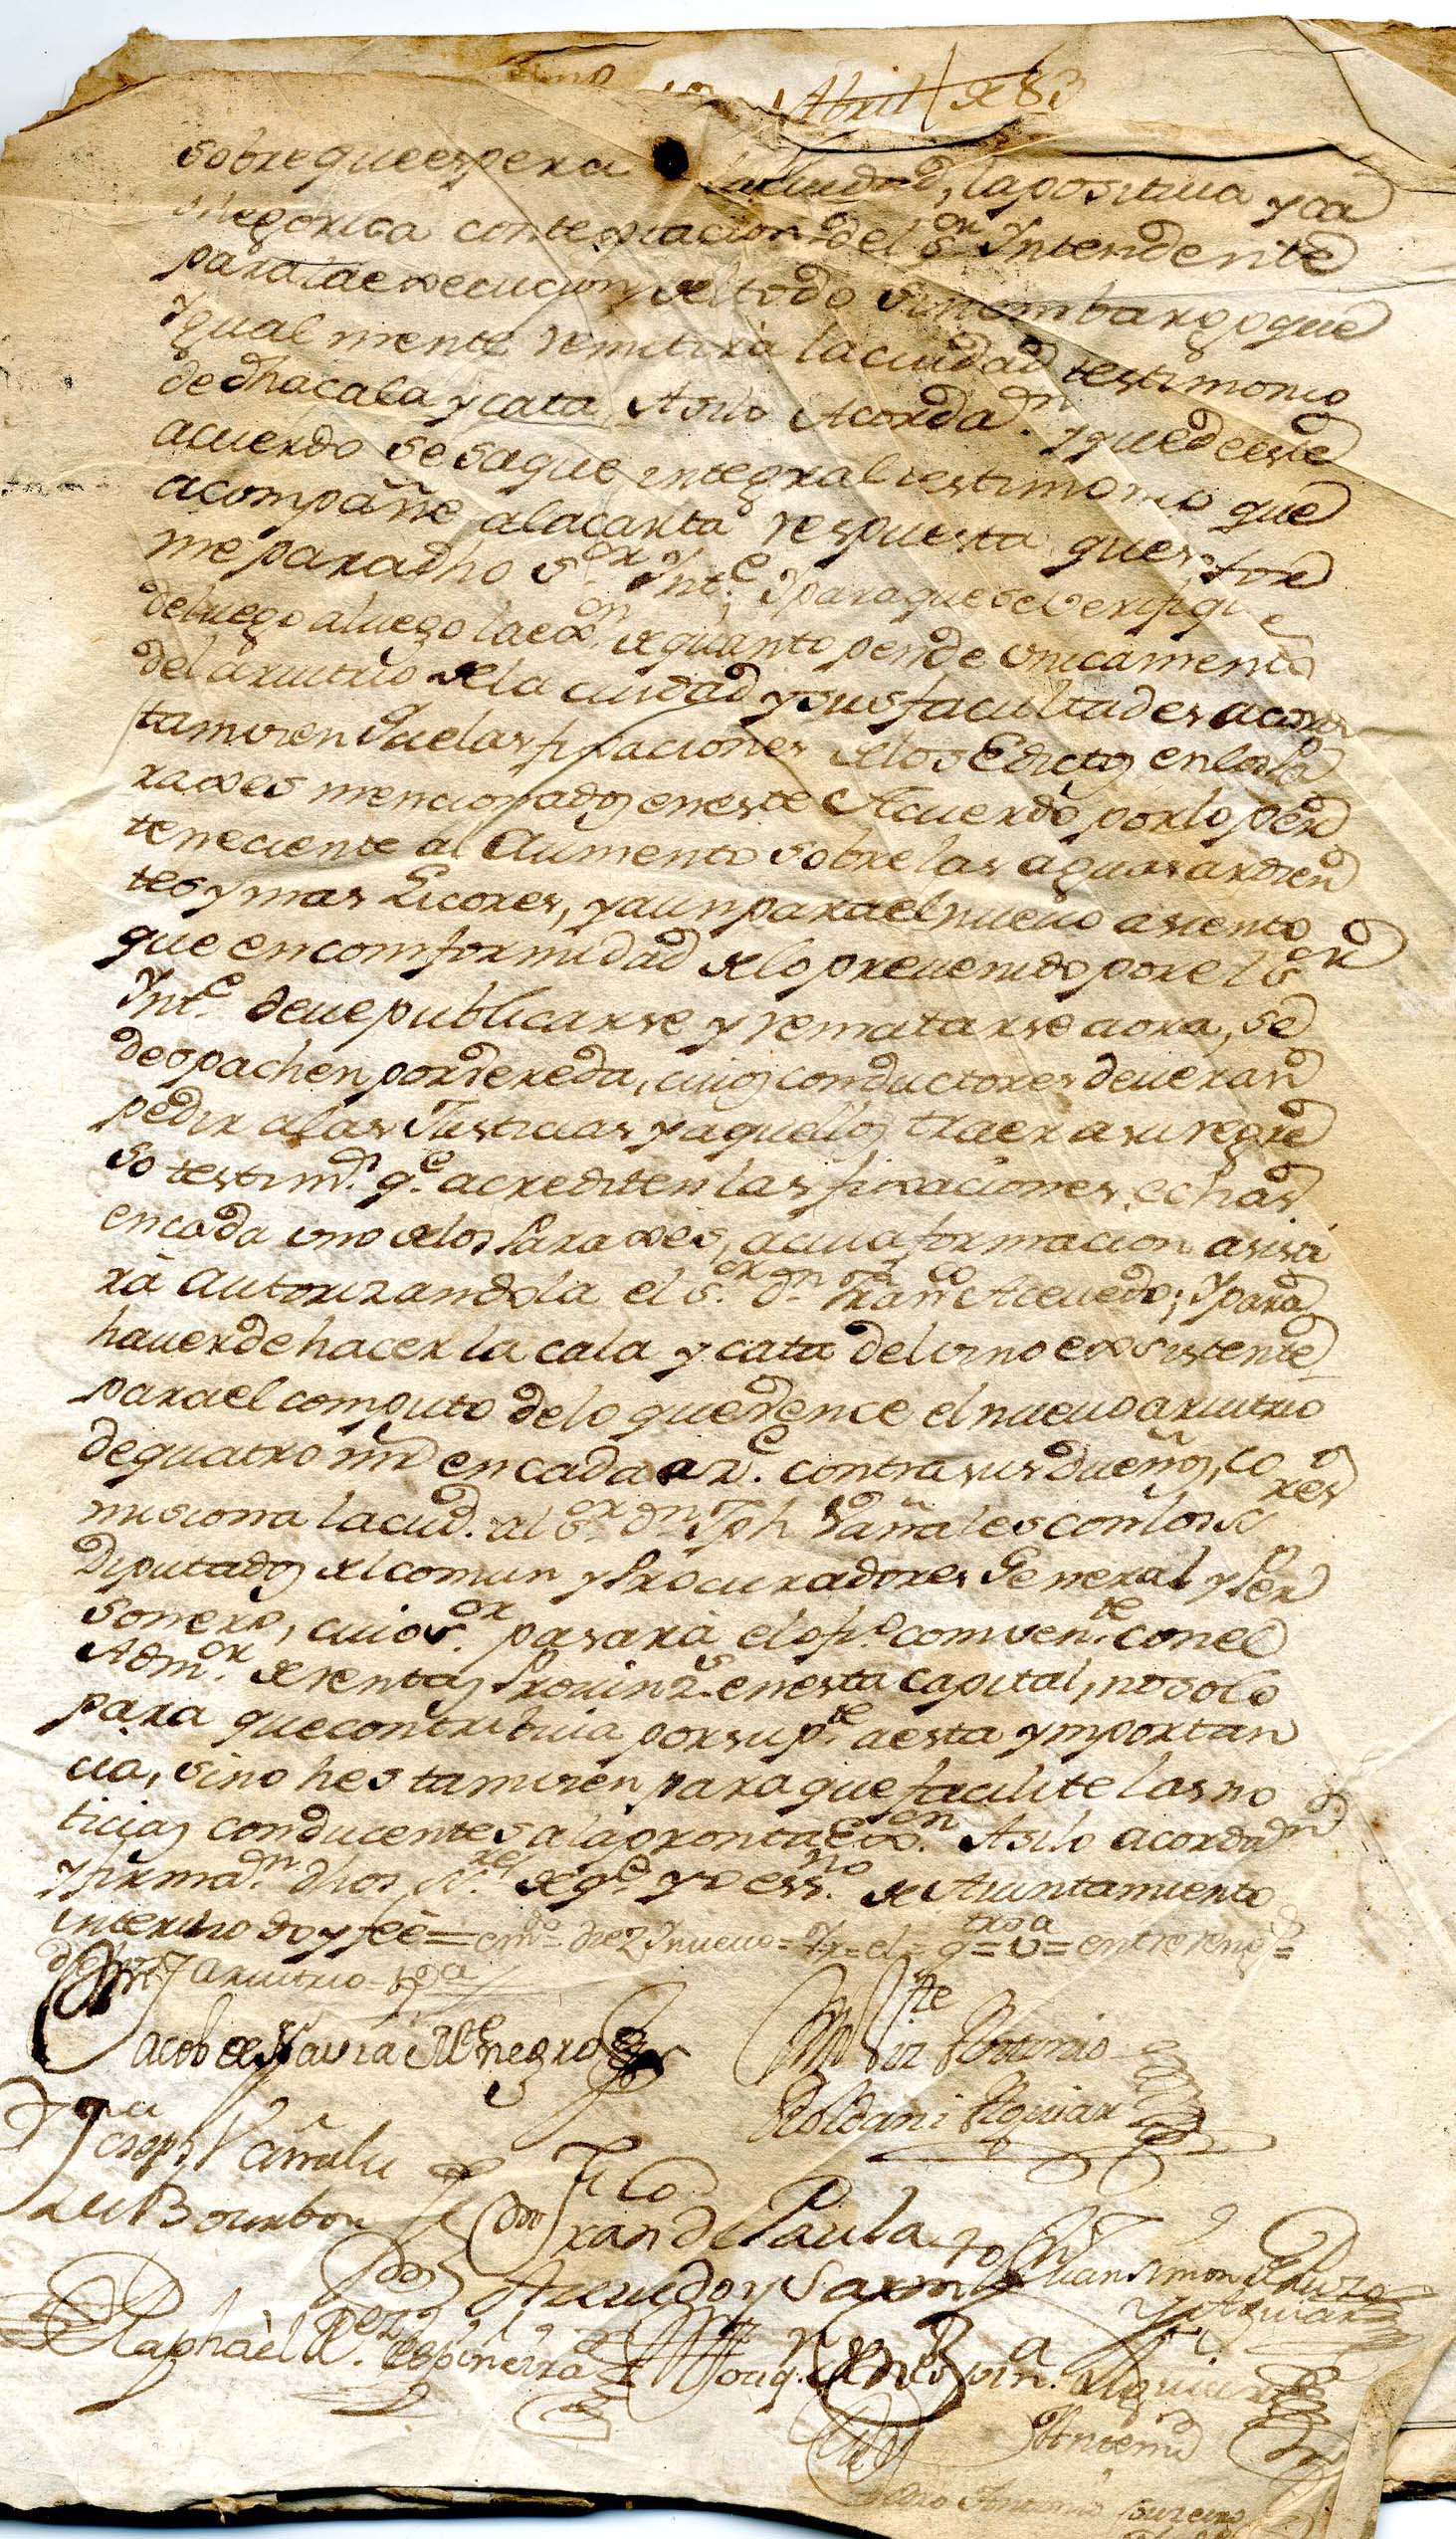 Abril de 83
sobre que espera la Ciudad, la positiua y ca
thegorica contextacion del Sor Intendente
para la execucion del todo sin embargo que
Ygual mente remitira la ciudad testimonio
de dha cala y cata. Asilo Acordadn y que de este
acuerdo se saque integral testimonio que
acompañe ala carta respuesta que se for
me para dho Sor Inte. Y para que se verifique
de luego a luego la exon de quanto pende vnicamente
del aruitrio de la ciudad y sus facultades acord
tamvien que las fixaciones de los Edictos en los Pa
raxes mencionados en este Acuerdo por lo per
teneciente al Aumento sobre las aguas ardien
tes y mas Licores, y aun para el nueuo asiento
que en comformidad de lo preuenido por el Sor
Inte. deue publicarse y rematarse aora, se
despachen por vereda, cuios conductores deueran
pedir a las Justicias y aquellos traer a su regre
so testimn. qe. acrediten las fixaciones echas
en cada uno de los Paraxes, a cuia formacion asisti
rà autorizandola el Sor. Dn Franco Aceuedo; Y para
hauer de hacer la cala y cata del vino exsistente
para el computo de lo que vence el nueuo aruitrio
de quatro mrs en cada az.e contra sus dueños, co
misiona la ciud. al Sor Dn Jph Vañales con los Sres
Diputados del comun y Procuradores General y Per
sonero, cuio Sor. pasarà el ofo. comvente. con el
Admor. de rentas Provinz.s en esta capital, no solo
para que contribuia por su pte. a esta ymportan
cia, sino hes tamvien para que facilite las no
ticias conducentes a la pronta exon. Asilo acordadn
y firmadn. dhos Sres. de qe. yo essno. de Aiuntamiento
interino doy feè = emdo = diez y nueuo = Yr = el = q = trsa = v = entre rengs =
aruitrio = Va
Jacob de Navia Mtenegro
Antonio
Roldan i Aguiar
Joseph Vañales
de Bourbon
Lizdo
Dn Fran de Paula
Aceuedo y Sarm to
Juan Simon
y Aguiar
Raphàel Rdez. Espineira
Aguiar
Antemi
Antonio